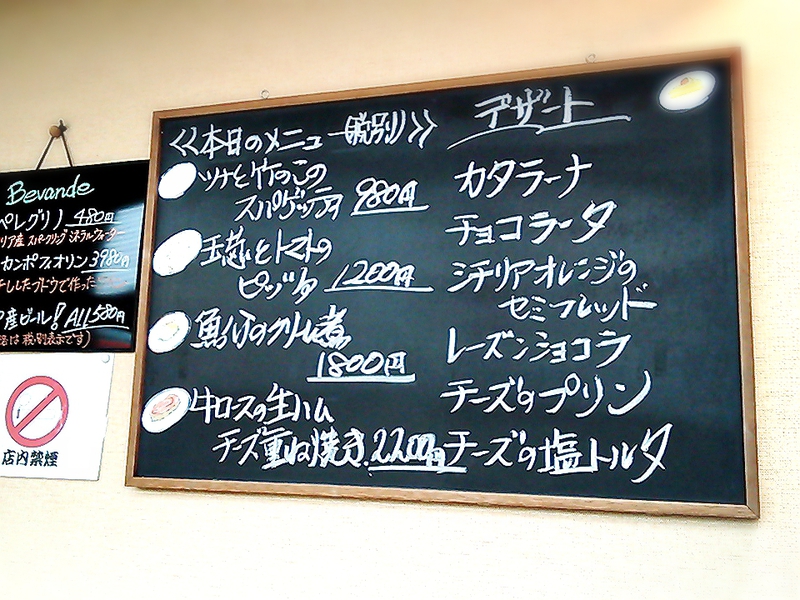 Bevande
ペレグリノ 480円
リア産 スパークリング ミネラルウォーター
カンポフィオリン 3980円
ししたブドウで作った
産ビール! All 580円
は税別表示です)
店内禁煙
<<本日のメニュー(税別)>>
ツナと竹のこの
スパゲッティ 980円
玉葱とトマトの
ピッツァ 1200円
魚介のクリーム煮
1800円
牛ロースの生ハム
チーズ重ね焼き 2200円
デザート
カタラーナ
チョコラータ
シチリアオレンジの
セミフレッド
レーズンショコラ
チーズのプリン
チーズの塩トルタ